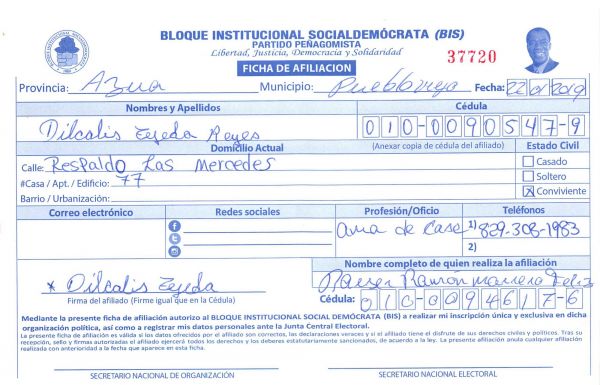 BLOQUE INSTITUCIONAL SOCIALDEMÓCRATA (BIS)
PARTIDO PEÑAGOMISTA
Libertad, Justicia, Democracia y Solidaridad
37720
FICHA DE AFILIACION
Provincia: Azua Municipio: Pueblo viejo Fecha: 22 01 2019
Nombres y Apellidos Cédula
Dilcalis Tejeda Reyes 010-0090547-9
Domicilio Actual (Anexar copia de cédula del afiliado) Estado Civil
Calle: Respaldo Las Mercedes Casado
#Casa / Apt. / Edificio: 77 Soltero
Barrio / Urbanización: X Conviviente
Correo electrónico Redes sociales Profesión/Oficio Teléfonos
Ama de Casa 1) 829-308-1983
2)
Nombre completo de quien realiza la afiliación
x Dilcalis Tejeda Ramón
Firma del afiliado (Firme igual que en la Cédula) Cédula: 010-0094617-6
Mediante la presente ficha de afiliación autorizo al BLOQUE INSTITUCIONAL SOCIAL DEMÓCRATA (BIS) a realizar mi inscripción única y exclusiva en dicha
organización política, así como a registrar mis datos personales ante la Junta Central Electoral.
La presente ficha de afiliación es válida si los datos ofrecidos por el afiliado son correctos, las declaraciones veraces y si el afiliado tiene el disfrute de sus derechos civiles y políticos. Tras su
recepción, sello y firmas autorizadas el afiliado ejercerá todos los derechos y los deberes estatutariamente sancionados, de acuerdo a la ley. La presente afiliación anula cualquier afiliación
realizada con anterioridad a la fecha que aparece en esta ficha.
SECRETARIO NACIONAL DE ORGANIZACIÓN SECRETARIO NACIONAL ELECTORAL